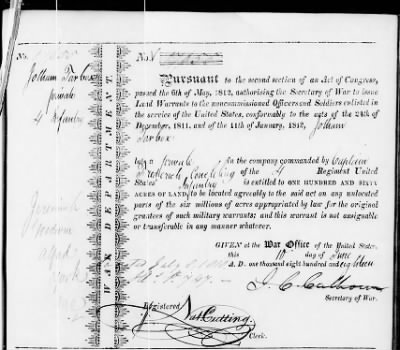 No.
No.
Jotham Tarbox
private
4 Infantry
WAR DEPARTMENT.
Pursuant to the second section of an Act of Congress,
passed the 6th of May, 1812, authorising the Secretary of War to issue
Land Warrants to the noncommissioned Officers and Soldiers enlisted in
the service of the United States, conformably to the acts of the 24th of
December, 1811, and of the 11th of January, 1812, Jotham
Tarbox
late a private in the company commanded by Captain
Conckling of the 4 Regiment United
States Infantry is entitled to ONE HUNDRED AND SIXTY
ACRES OF LAND, to be located agreeably to the said act on any unlocated
parts of the six millions of acres appropriated by law for the original
grantees of such military warrants; and this warrant is not assignable
or transferable in any manner whatever.
GIVEN at the War Office of the United States,
this 10 day of June
A. D. one thousand eight hundred and eighteen
J. C. Calhoun
Secretary of War.
Registered
Nat Cutting.
Clerk.
Jeremiah
York